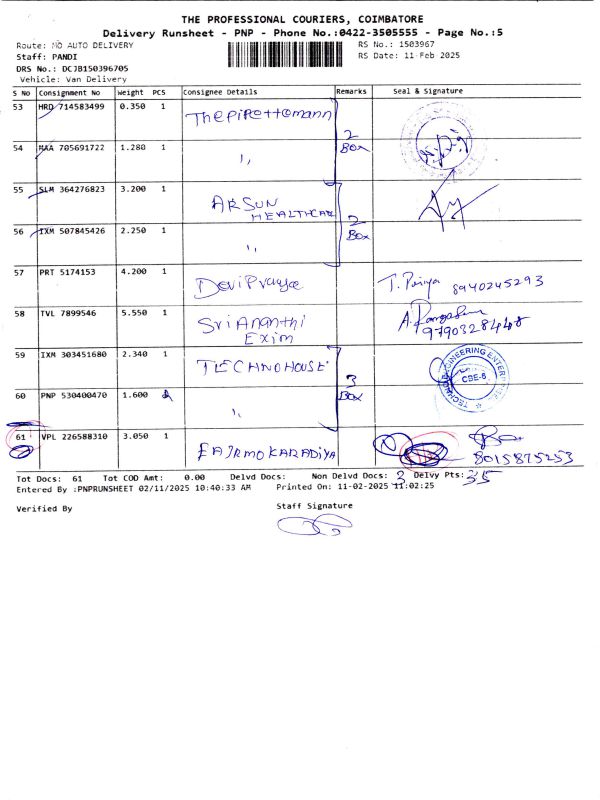 THE PROFESSIONAL COURIERS, COIMBATORE
Delivery Runsheet - PNP - Phone No.:0422-3505555 - Page No.:5
Route: MO AUTO DELIVERY RS No.: 1503967
Staff: PANDI RS Date: 11 Feb 2025
DRS No.: DCJB150396705
Vehicle: Van Delivery
S No Consignment No Weight PCS Consignee Details Remarks Seal & Signature
53 HRD 714583499 0.350 1 Thepirottomann
2 Box
54 MAA 705691722 1.280 1 ''
55 SLM 364276823 3.200 1 ARSUN HEALTHCARE
2 Box
56 IXM 507845426 2.250 1 ''
57 PRT 5174153 4.200 1 Devipraya T. Priya 8940245293
58 TVL 7899546 5.550 1 Sri Ananthi Exim 9790328448
59 IXM 303451680 2.340 1 TECHNOHOUSE CBE-6
3 Box
60 PNP 530400470 1.600 ''
61 VPL 226588310 3.050 1 FAJRMO KARADIYA 8015875253
Tot Docs: 61 Tot COD Amt: 0.00 Delvd Docs: Non Delvd Docs: 3 Delvy Pts: 35
Entered By :PNPRUNSHEET 02/11/2025 10:40:33 AM Printed On: 11-02-2025 11:02:25
Verified By Staff Signature